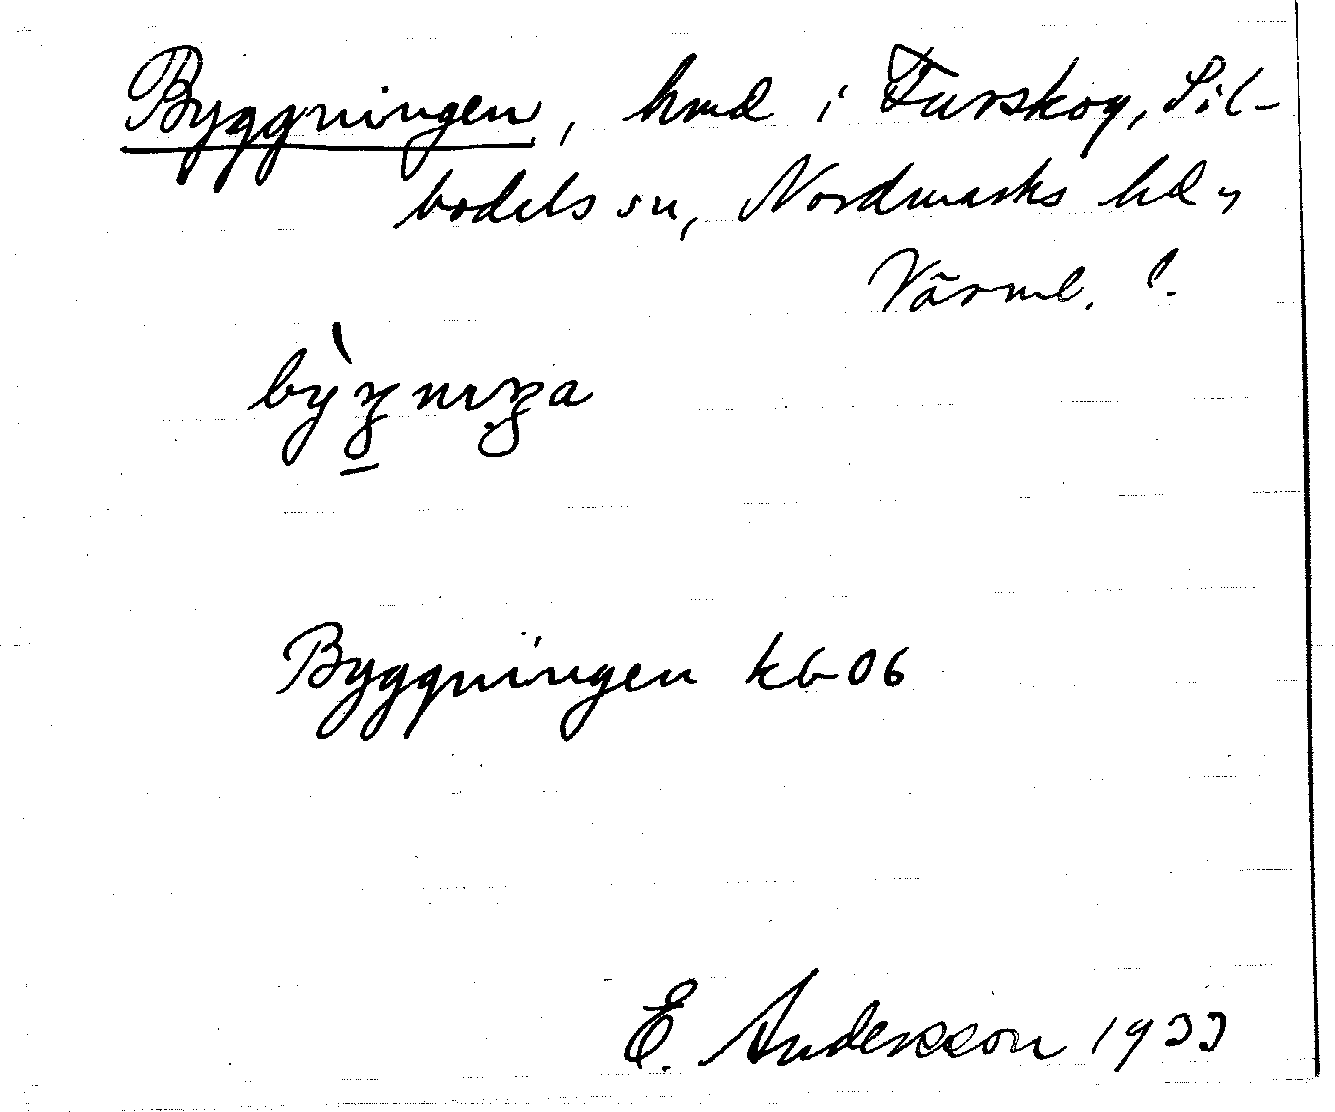 Byggningen, hmd i Furskog, Sil-
bodels sn, Nordmarks hd,
Värml. l.
Byggningen kb 06
E. Andersson 1933